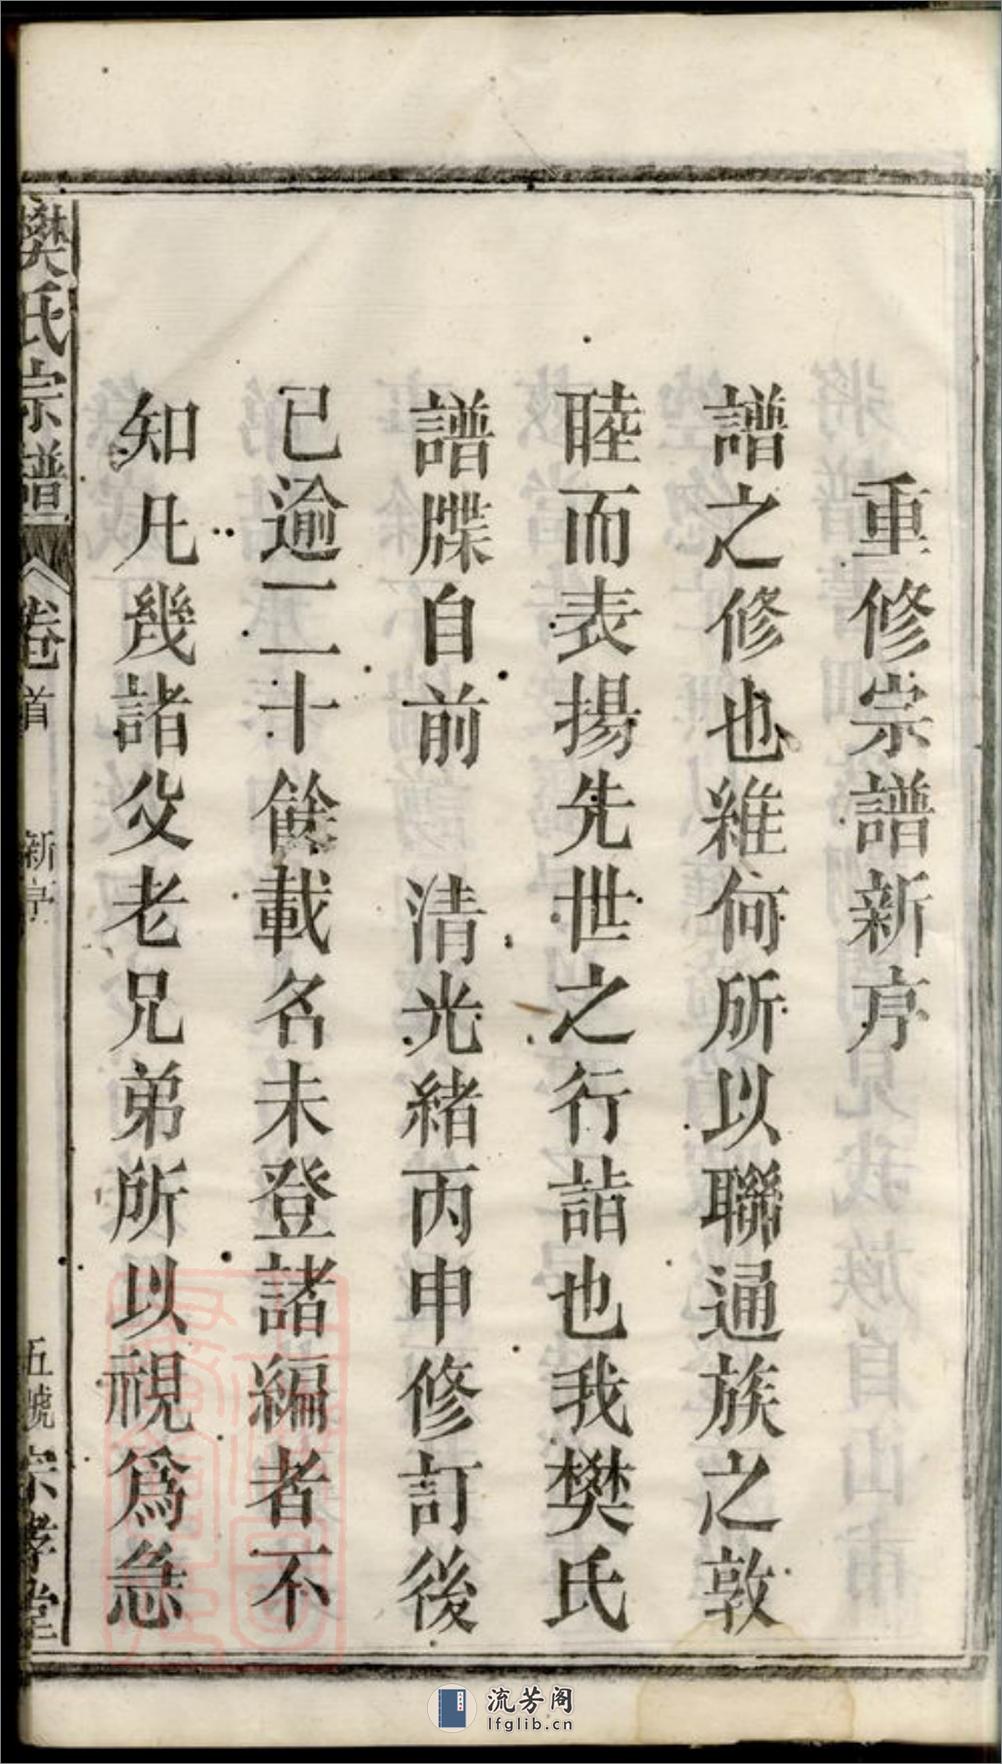 重修宗譜新序
譜之修也維何所以聯通族之敦
睦而表揚先世之行詣也我樊氏
譜牒自前　清光緒丙申修訂後
已逾二十餘載名未登諸編者不
知凡幾諸父老兄弟所以視爲急
樊氏宗譜
卷首
新序
五號
宗孝堂
流芳阁
lfglib.cn